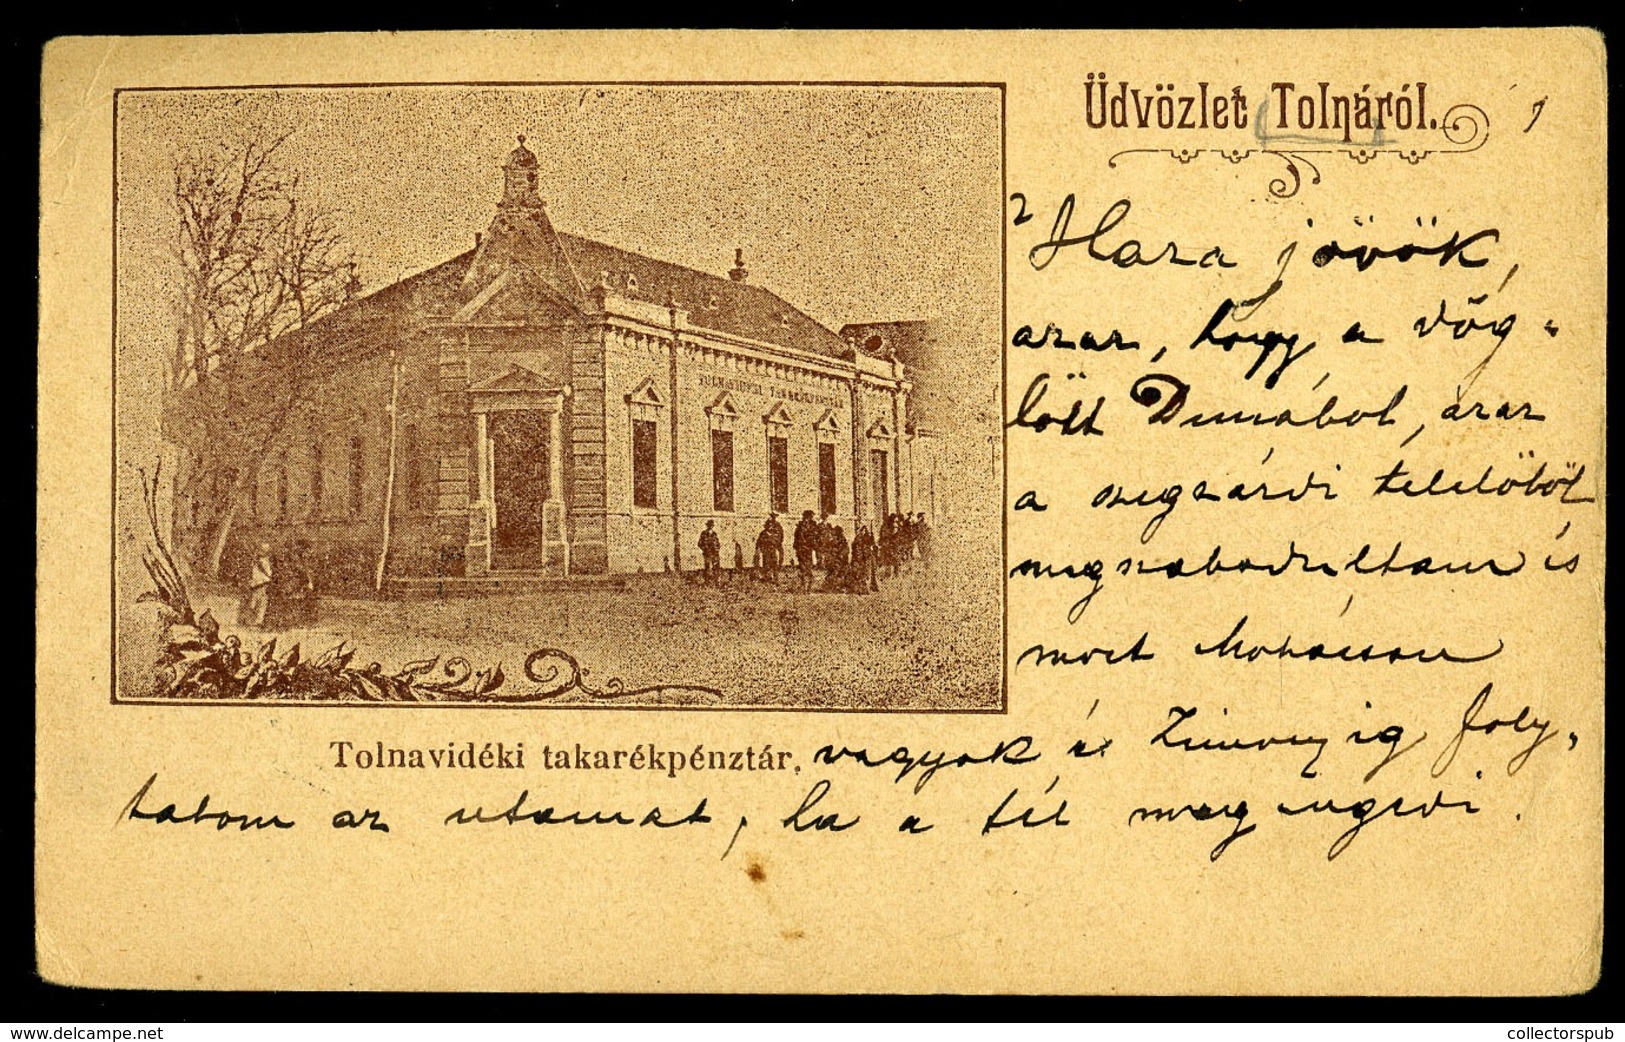 Üdvözlet Tolnáról.
TOLNAVIDÉKI TAKARÉKPÉNZTÁR
Haza jövök,
azaz, hogy a Vög-
lött Dunából, azaz
a szegzárdi telelőből
megszabadultam és
most Mohácson
Tolnavidéki takarékpénztár.
vagyok és Zimonyig foly-
tatom az utamat, ha a tél megengedi.
www.delcampe.net
collectorspub